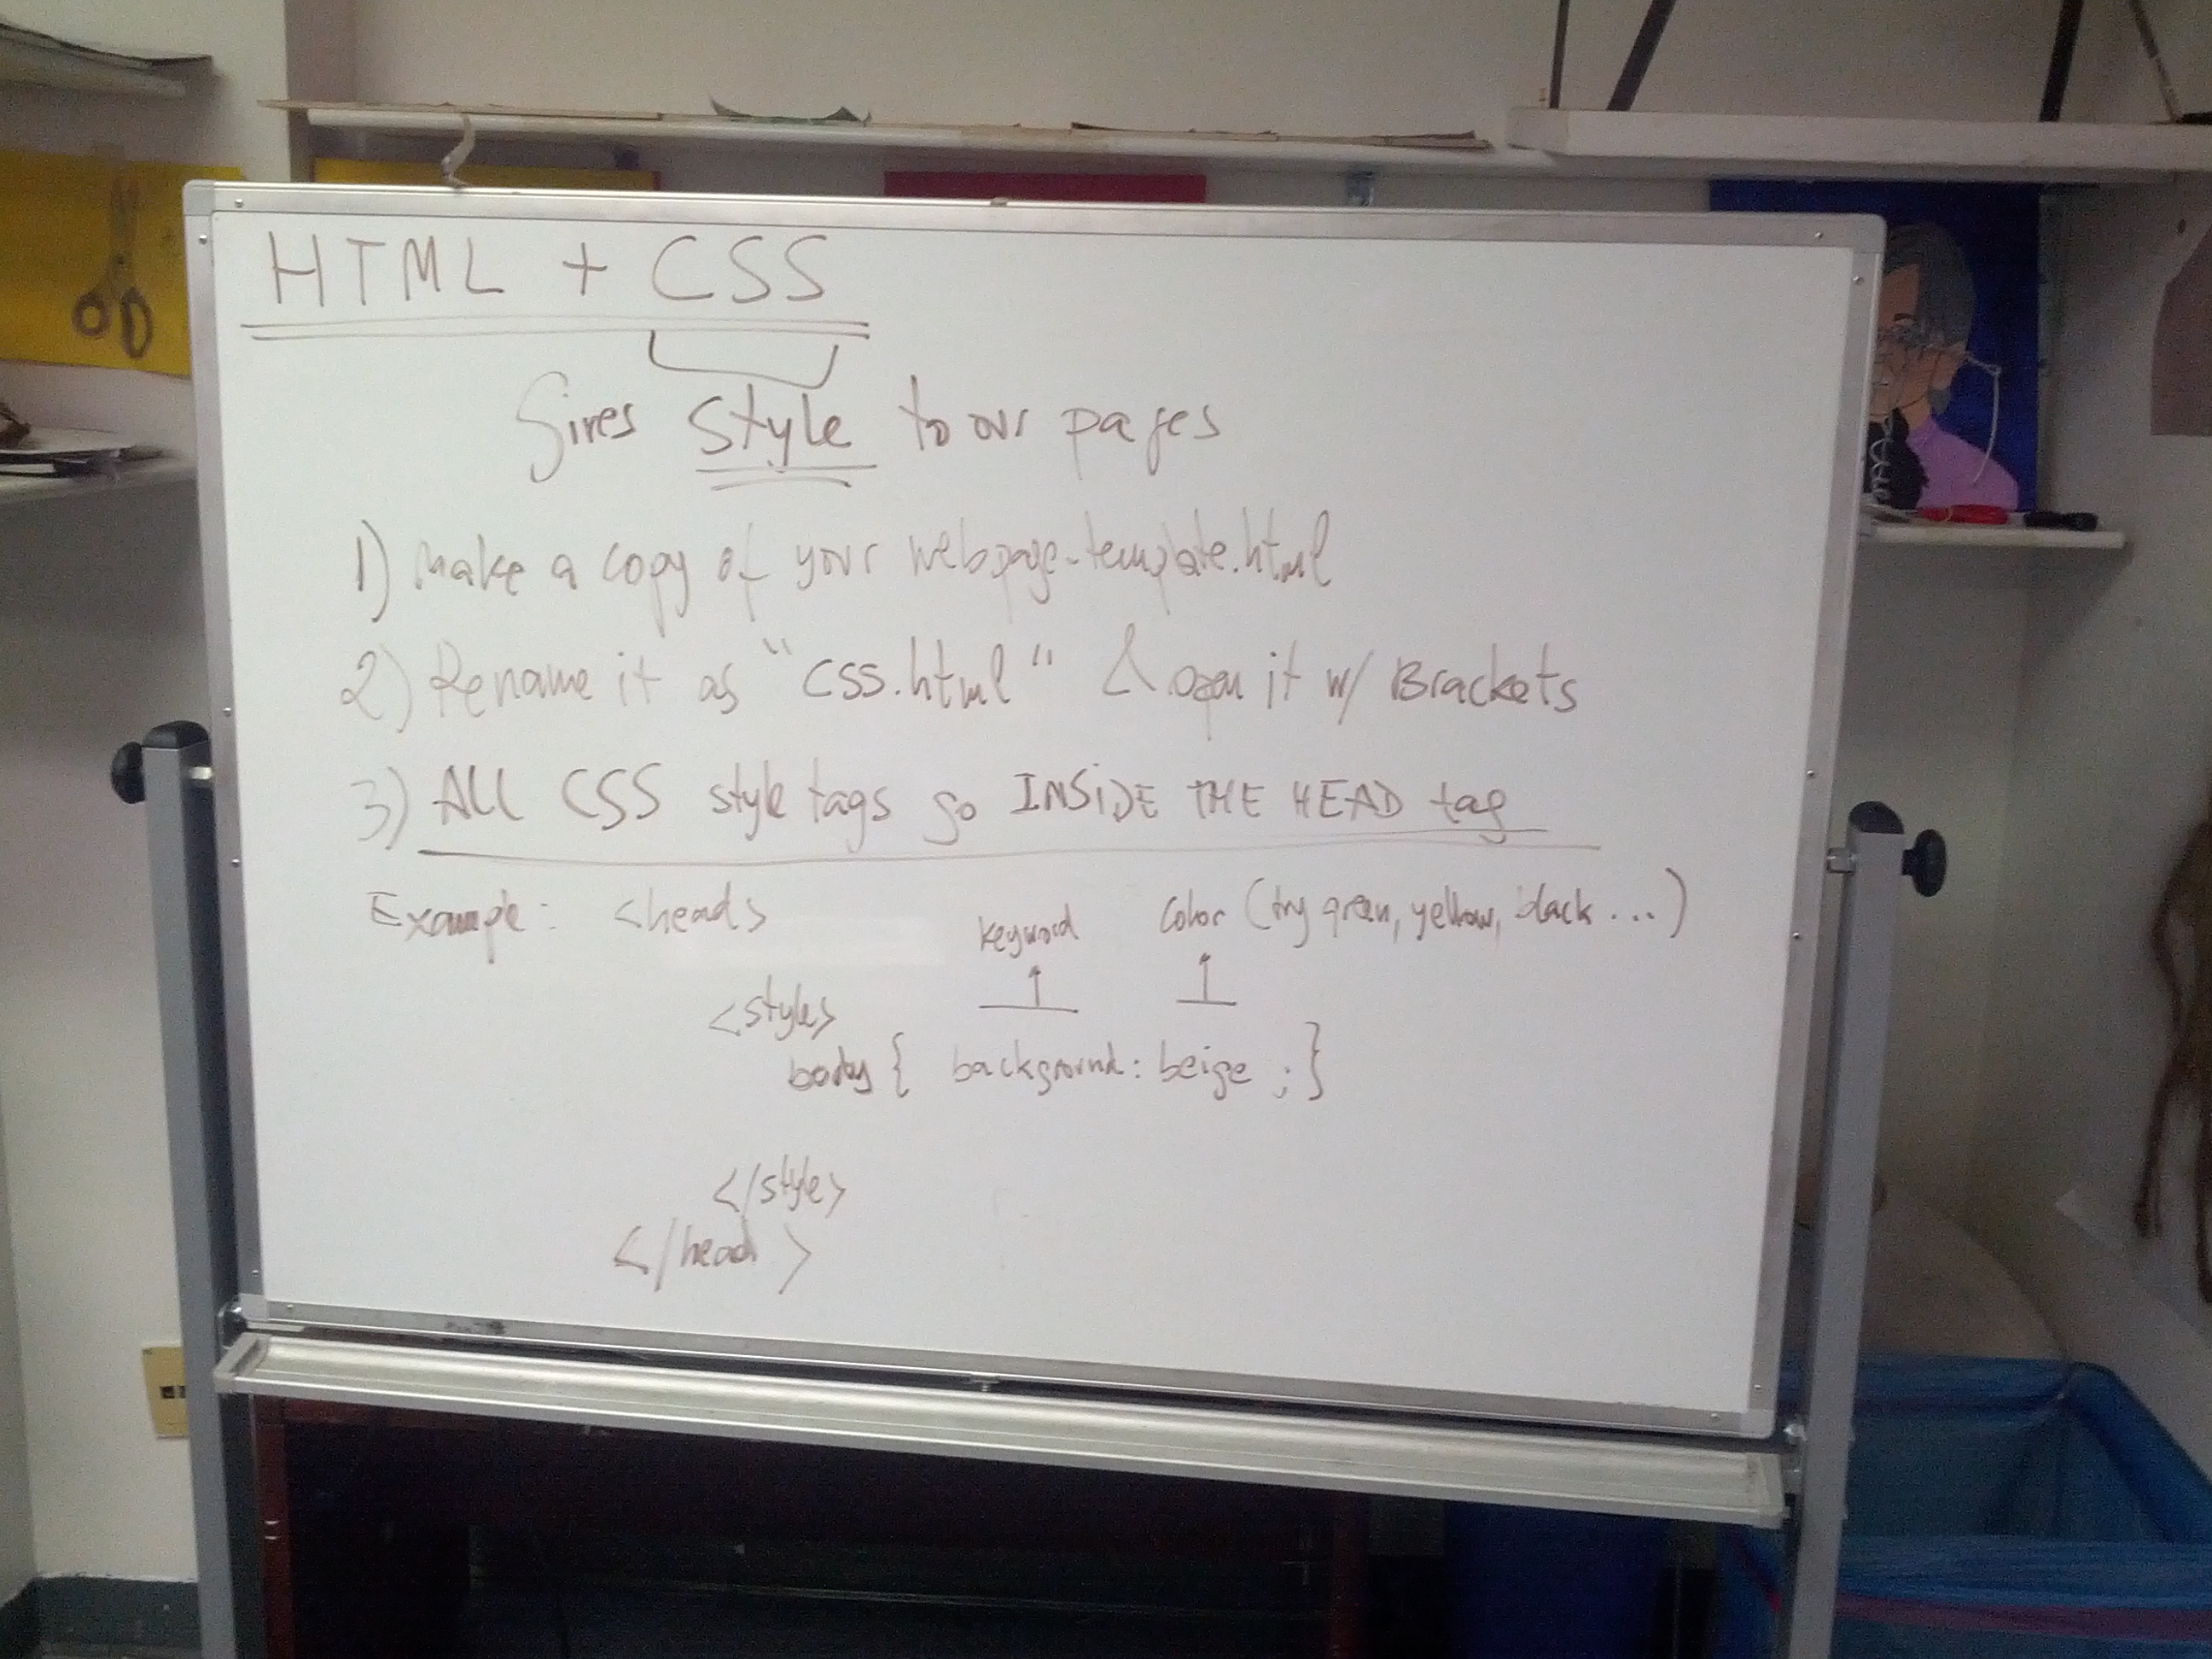 HTML + CSS
Gives style to our pages
1) Make a copy of your webpage-template.html
2) Rename it as "css.html" & open it w/ Brackets
3) ALL CSS style tags go INSIDE THE HEAD tag
Example: <head>
keyword color (try green, yellow, black ...)
<style>
body { background: beige ; }
</style>
</head>